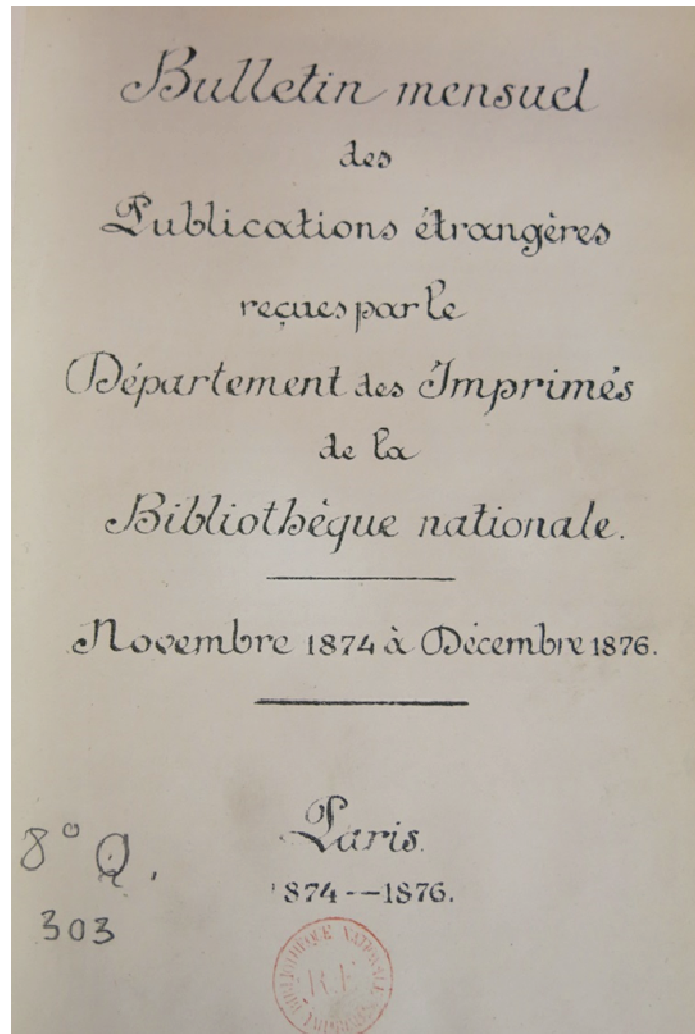 Bulletin mensuel
des
Publications étrangères
reçues par le
Département des Imprimés
de la
Bibliothèque nationale.
Novembre 1874 à Décembre 1876.
Paris.
1874--1876.
8° Q.
303
BIBLIOTHEQUE NATIONALE
R.F